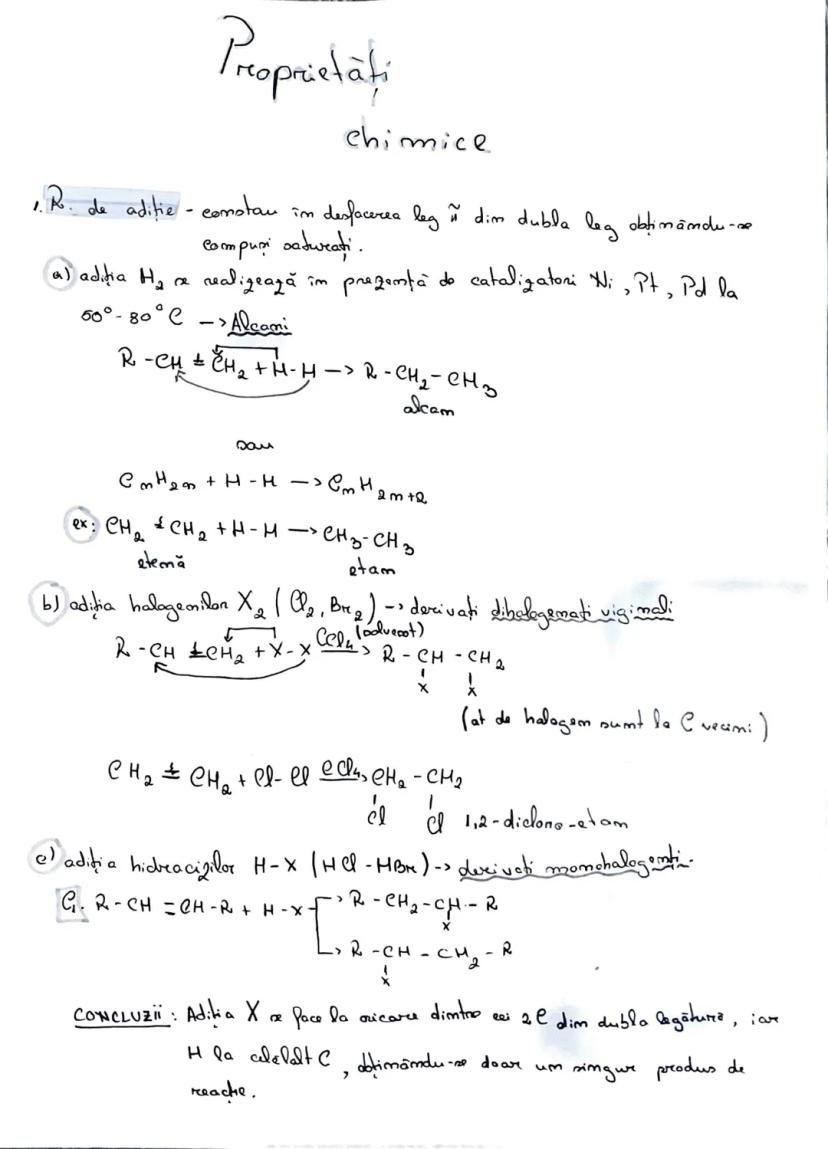 Proprietăți
chimice
1. R. de adiție - constau în desfacerea leg π din dubla leg obținându-se
compuși saturați.
a) adiția H₂ se realizează în prezență de catalizatori Ni, Pt, Pd la
50° - 80°C -> Alcani
R - CH = CH₂ + H - H -> R - CH₂ - CH₃
alcan
sau
CnH2n + H - H -> CnH2n+2
ex: CH₂ = CH₂ + H - H -> CH₃ - CH₃
etenă etan
b) adiția halogenilor X₂ (Cl₂, Br₂) -> derivați dihalogenați vicinali
(solvent)
R - CH = CH₂ + X - X CCl₄ -> R - CH - CH₂
X X
(at de halogen sunt la C vecini)
CH₂ = CH₂ + Cl - Cl CCl₄ -> CH₂ - CH₂
Cl Cl 1,2-dicloro-etan
c) adiția hidracizilor H-X (HCl - HBr) -> derivați monohalogenți.
C₁. R - CH = CH - R + H - X -> R - CH₂ - CH - R
X
-> R - CH - CH₂ - R
X
CONCLUZII: Adiția X se face la oricare dintre cei 2C din dubla legătură, iar
H la celălalt C, obținându-se doar un singur produs de
reacție.